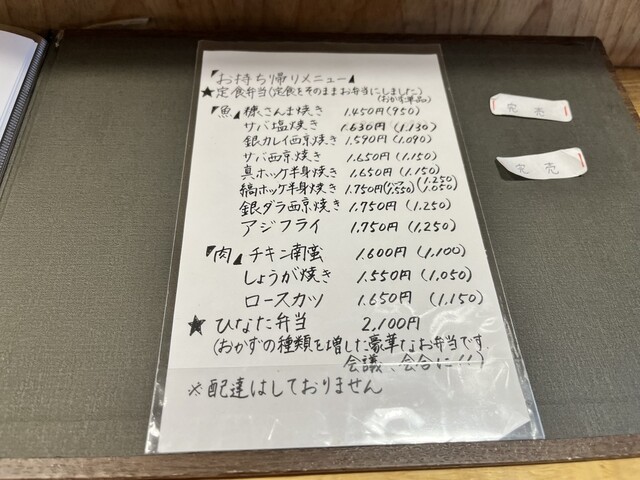 「お持ち帰りメニュー」
★定食弁当(定食をそのままお弁当にしました)
(おかず単品)
「魚」糠さんま焼き 1.450円(950)
サバ塩焼き 1.630円(1.130)
銀カレイ西京焼き 1.590円(1.090)
サバ西京焼き 1.650円(1.150)
真ホッケ半身焼き 1.650円(1.150)
縞ホッケ半身焼き 1.750円(1.250)
(1.550)(1.050)
銀ダラ西京焼き 1.750円(1.250)
アジフライ 1.750円(1.250)
「肉」チキン南蛮 1.600円(1.100)
しょうが焼き 1.550円(1.050)
ロースカツ 1.650円(1.150)
★ひなた弁当 2.100円
(おかずの種類を増した豪華なお弁当です.
会議、会合に!!)
※配達はしておりません
完売
完売